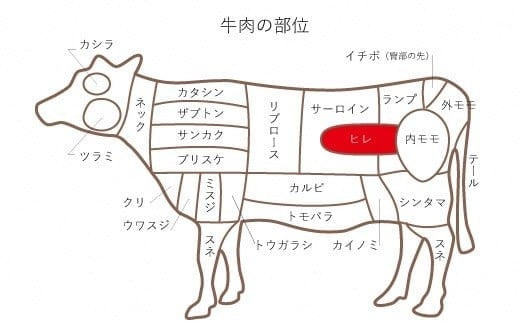 牛肉の部位
カシラ
イチボ（臀部の先）
カタシン
ザブトン
サンカク
ブリスケ
ネック
リブロース
サーロイン
ランプ
外モモ
ヒレ
内モモ
ツラミ
テール
クリ
ウワスジ
ミスジ
カルビ
トモバラ
シンタマ
スネ
トウガラシ
カイノミ
スネ